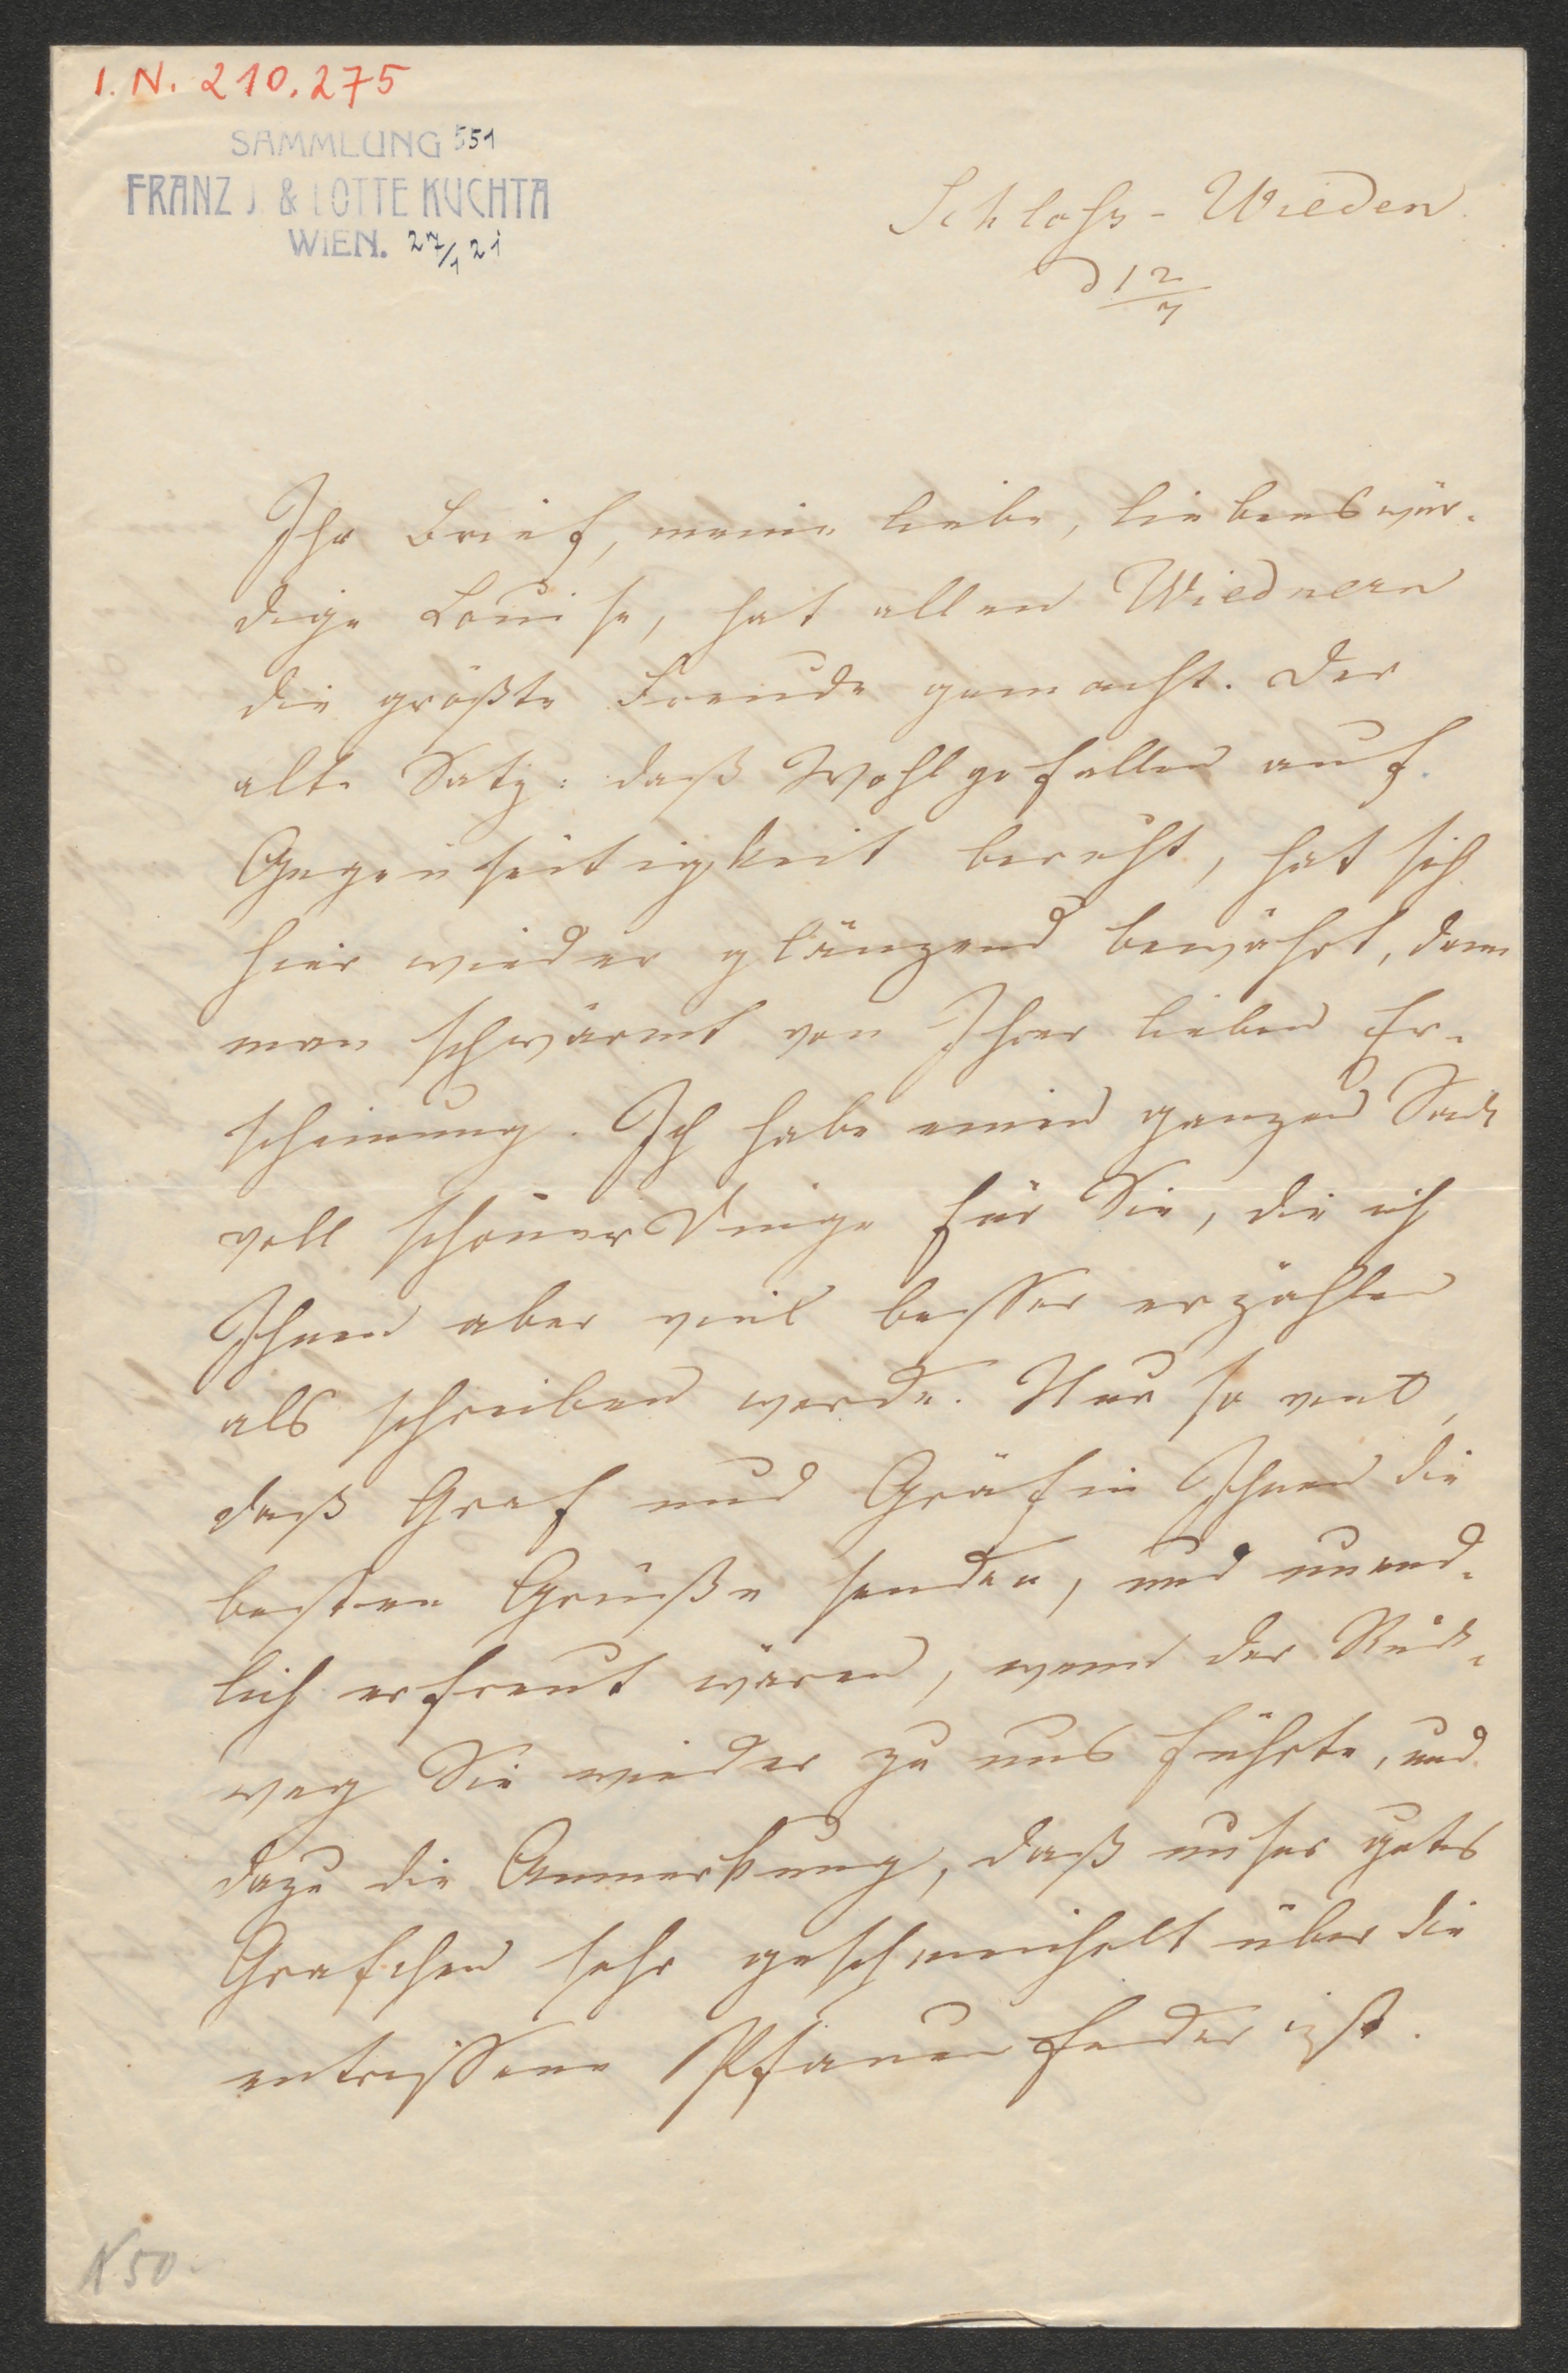 I. N. 210.275
SAMMLUNG 551
FRANZ J. & LOTTE KUCHTA
WIEN. 27/1 21
Schloß-Wieden
d 12/7
Ihr Brief, meine liebe, liebenswür-
dige Louise, hat allen Wiednern
die größte Freude gemacht. Der
alte Satz: daß Wohlgefallen auf
Gegenseitigkeit beruht, hat sich
hier wieder glänzend bewährt, denn
man schwärmt von Ihrer lieben Er-
scheinung. Ich habe einen ganzen Sack
voll schöner Dinge für Sie, die ich
Ihnen aber viel besser erzählen
als schreiben werde. Nur so viel,
daß Graf und Gräfin Ihnen die
besten Grüße senden, und unend-
lich erfreut wären, wenn der Rück-
weg Sie wieder zu uns führte, und
dazu die Anmerkung, daß unser gutes
Grafchen sehr geschmeichelt über die
entrissene Pfauenfeder ist.
K 50